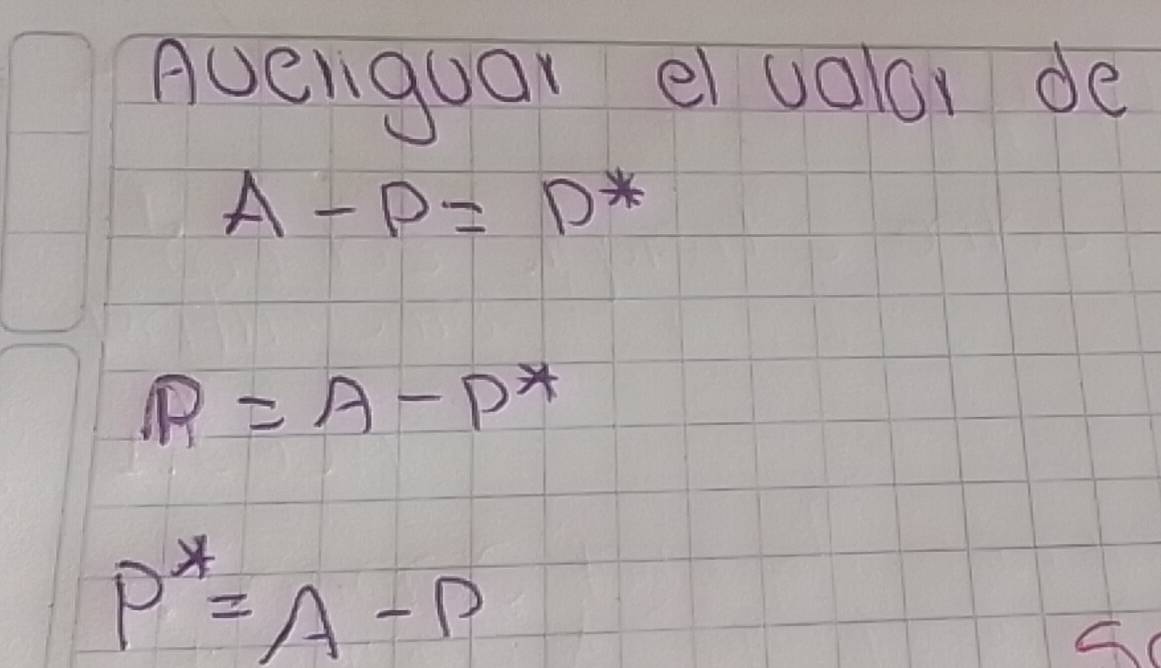 Averiguar el valor de
A - P = P*
P = A - P*
P* = A - P